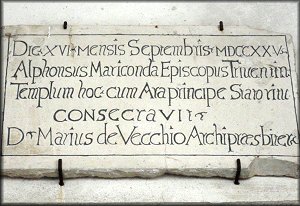 Die XVI Mensis Septembris MDCCXXV
Alphonsus Mariconda Episcopus Triven in
Templum hoc cum Ara principe
CONSECRAVIT
D Marius de Vecchio Archipræsbiter